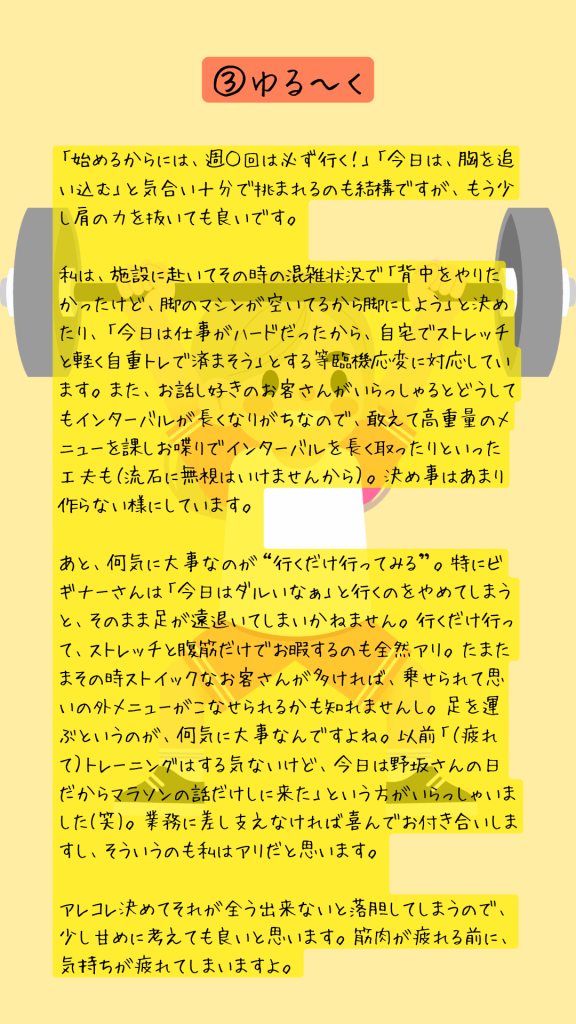 ③ゆる〜く
「始めるからには、週〇回は必ず行く!」「今日は、胸を追
い込む」と気合い十分で挑まれるのも結構ですが、もう少
し肩の力を抜いても良いです。
私は、施設に赴いてその時の混雑状況で「背中をやりた
かったけど、脚のマシンが空いてるから脚にしよう」と決め
たり、「今日は仕事がハードだったから、自宅でストレッチ
と軽く自重トレで済まそう」とする等臨機応変に対応してい
ます。また、お話し好きのお客さんがいらっしゃるとどうして
もインターバルが長くなりがちなので、敢えて高重量のメ
ニューを課しお喋りでインターバルを長く取ったりといった
工夫も(流石に無視はいけませんから)。決め事はあまり
作らない様にしています。
あと、何気に大事なのが“行くだけ行ってみる”。特にビ
ギナーさんは「今日はダルいなぁ」と行くのをやめてしまう
と、そのまま足が遠退いてしまいかねません。行くだけ行っ
て、ストレッチと腹筋だけでお暇するのも全然アリ。たまた
まその時ストイックなお客さんが多ければ、乗せられて思
いの外メニューがこなせられるかも知れませんし。足を運
ぶというのが、何気に大事なんですよね。以前「(疲れ
て)トレーニングはする気ないけど、今日は野坂さんの日
だからマラソンの話だけしに来た」という方がいらっしゃいま
した(笑)。業務に差し支えなければ喜んでお付き合いしま
すし、そういうのも私はアリだと思います。
アレコレ決めてそれが全う出来ないと落胆してしまうので、
少し甘めに考えても良いと思います。筋肉が疲れる前に、
気持ちが疲れてしまいますよ。